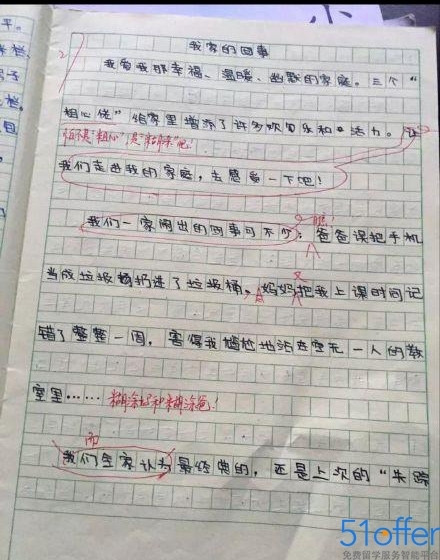 平。
我家的囧事
我爱我那幸福、温暖、幽默的家庭。三个“
粗心佬”给家里增添了许多欢笑和活力。让
怕不是“粗心”是“糊涂”吧!
我们走进我的家庭,去感受一下吧!
瞧!
我们一家闹出的囧事可不少,爸爸误把手机
当成垃圾扔进了垃圾桶,妈妈把我上课时间记
错了整整一周,害得我尴尬地站在空无一人的教
室里……糊涂妈和糊涂爸!
而
我们全家认为最经典的,还是上次的“失踪
51offer
免费留学服务智能平台